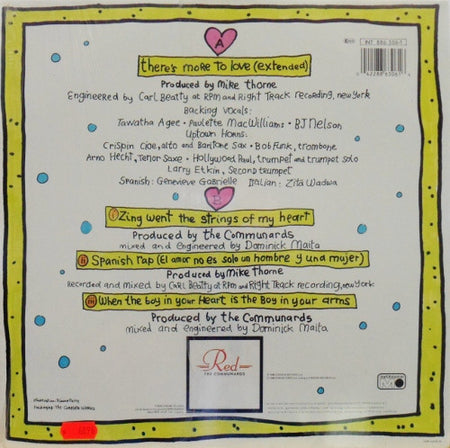 A
there's more to love (extended)
INT 886.306-1
Produced by mike thorne
Engineered by Carl Beatty at RPM and Right Track recording, new york
Backing vocals:
Tawatha Agee • Paulette MacWilliams • BJ Nelson
Uptown Horns:
Crispin Cioe, alto and Baritone Sax • Bob Funk, trombone
Arno Hecht, tenor Saxe • Hollywood Paul, trumpet and trumpet solo
Larry Etkin, Second trumpet
Spanish: Genevieve Gabrielle Italian: Zita Wadwa
B
i Zing went the strings of my heart
Produced by the Communards
mixed and engineered by Dominick Maita
ii Spanish rap (El amor no es solo un hombre y una mujer)
Produced by Mike thorne
Recorded and mixed by Carl Beatty at RPM and Right Track recording, new York
iii When the boy in your Heart is the Boy in your arms
Produced by the Communards
mixed and engineered by Dominick Maita
Red
THE COMMUNARDS